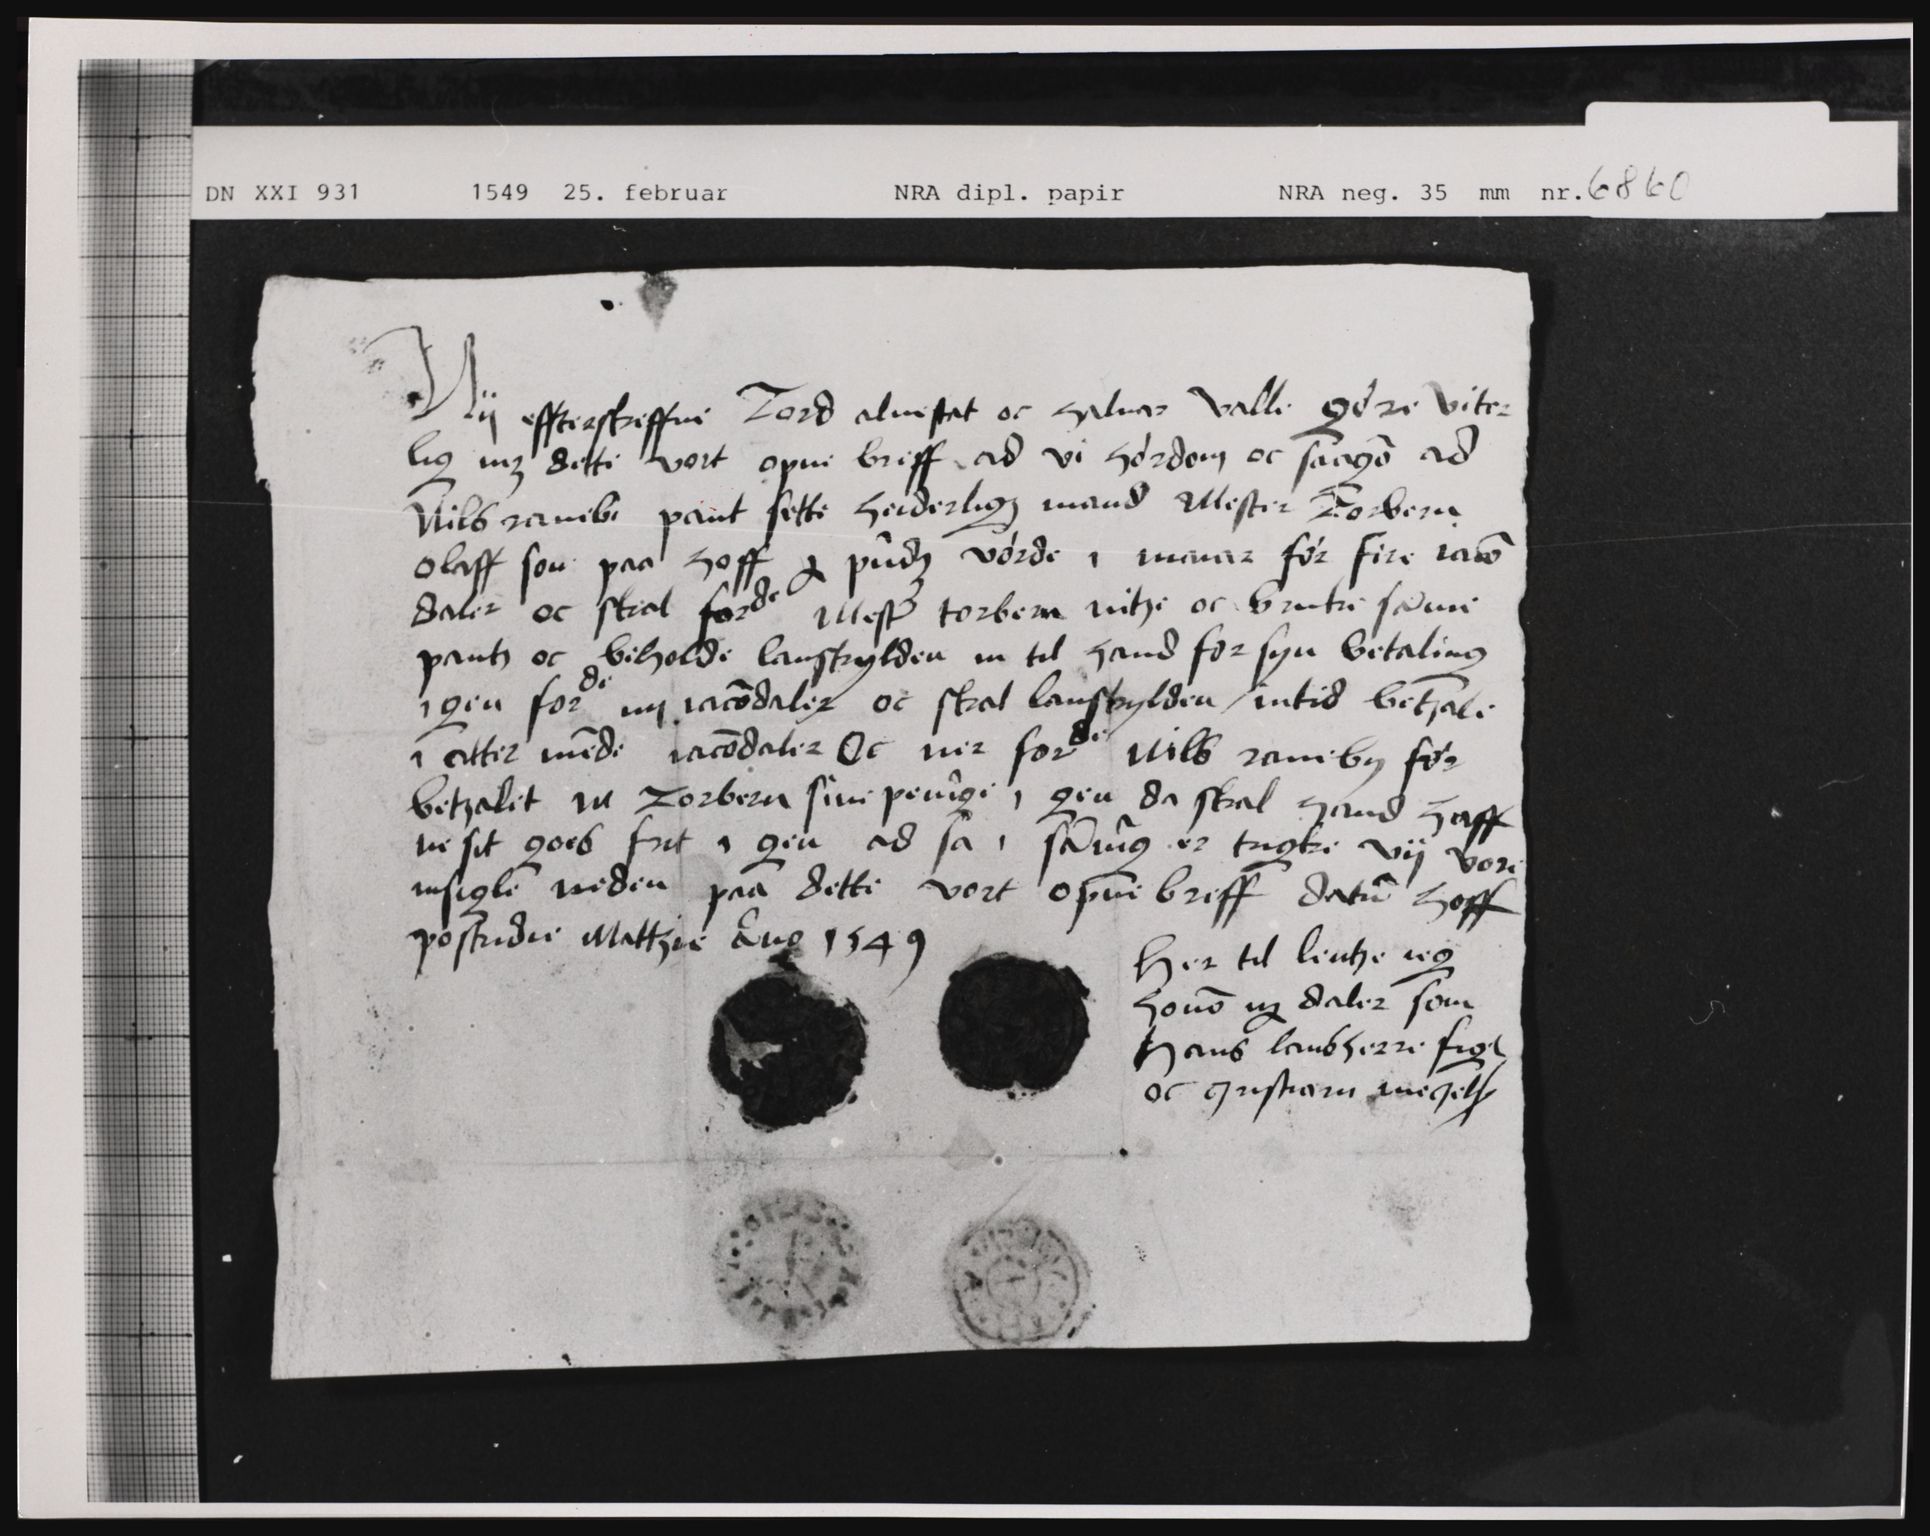 DN XXI 931 1549 25. februar NRA dipl. papir NRA neg. 35 mm nr. 6860
Vij effterskreffne Tord aluestat oc haluar Valle gøre viter
lig mz dette vort opne breff ad vi hørdom oc saagō ad
Nils ranebi pant sette heiderligz mand Mester Torbern
olaff son paa hoff pūdz vørde i manar for fire iacō
daler oc skal forde Mestr torbern nithe oc brutke sāme
panth oc beholde lanskylden in til hand for syn betaling
igen forde iiij iacōdaler oc skal lanskylden intid bethale
i atter mēde iacōdaler Oc ner forde Nils raneby før
bethalit M Torbern sine penīge i gen da skal hand haff
ue sit goes frit i gen ad sa i sāning er trygke vij vore
insigle neden paa dette vort opne breff datū hoff
postridie Matthie Año 1549
Her til lenthe ieg
honō iij daler som
Hans lansherre figk
oc cristiarn